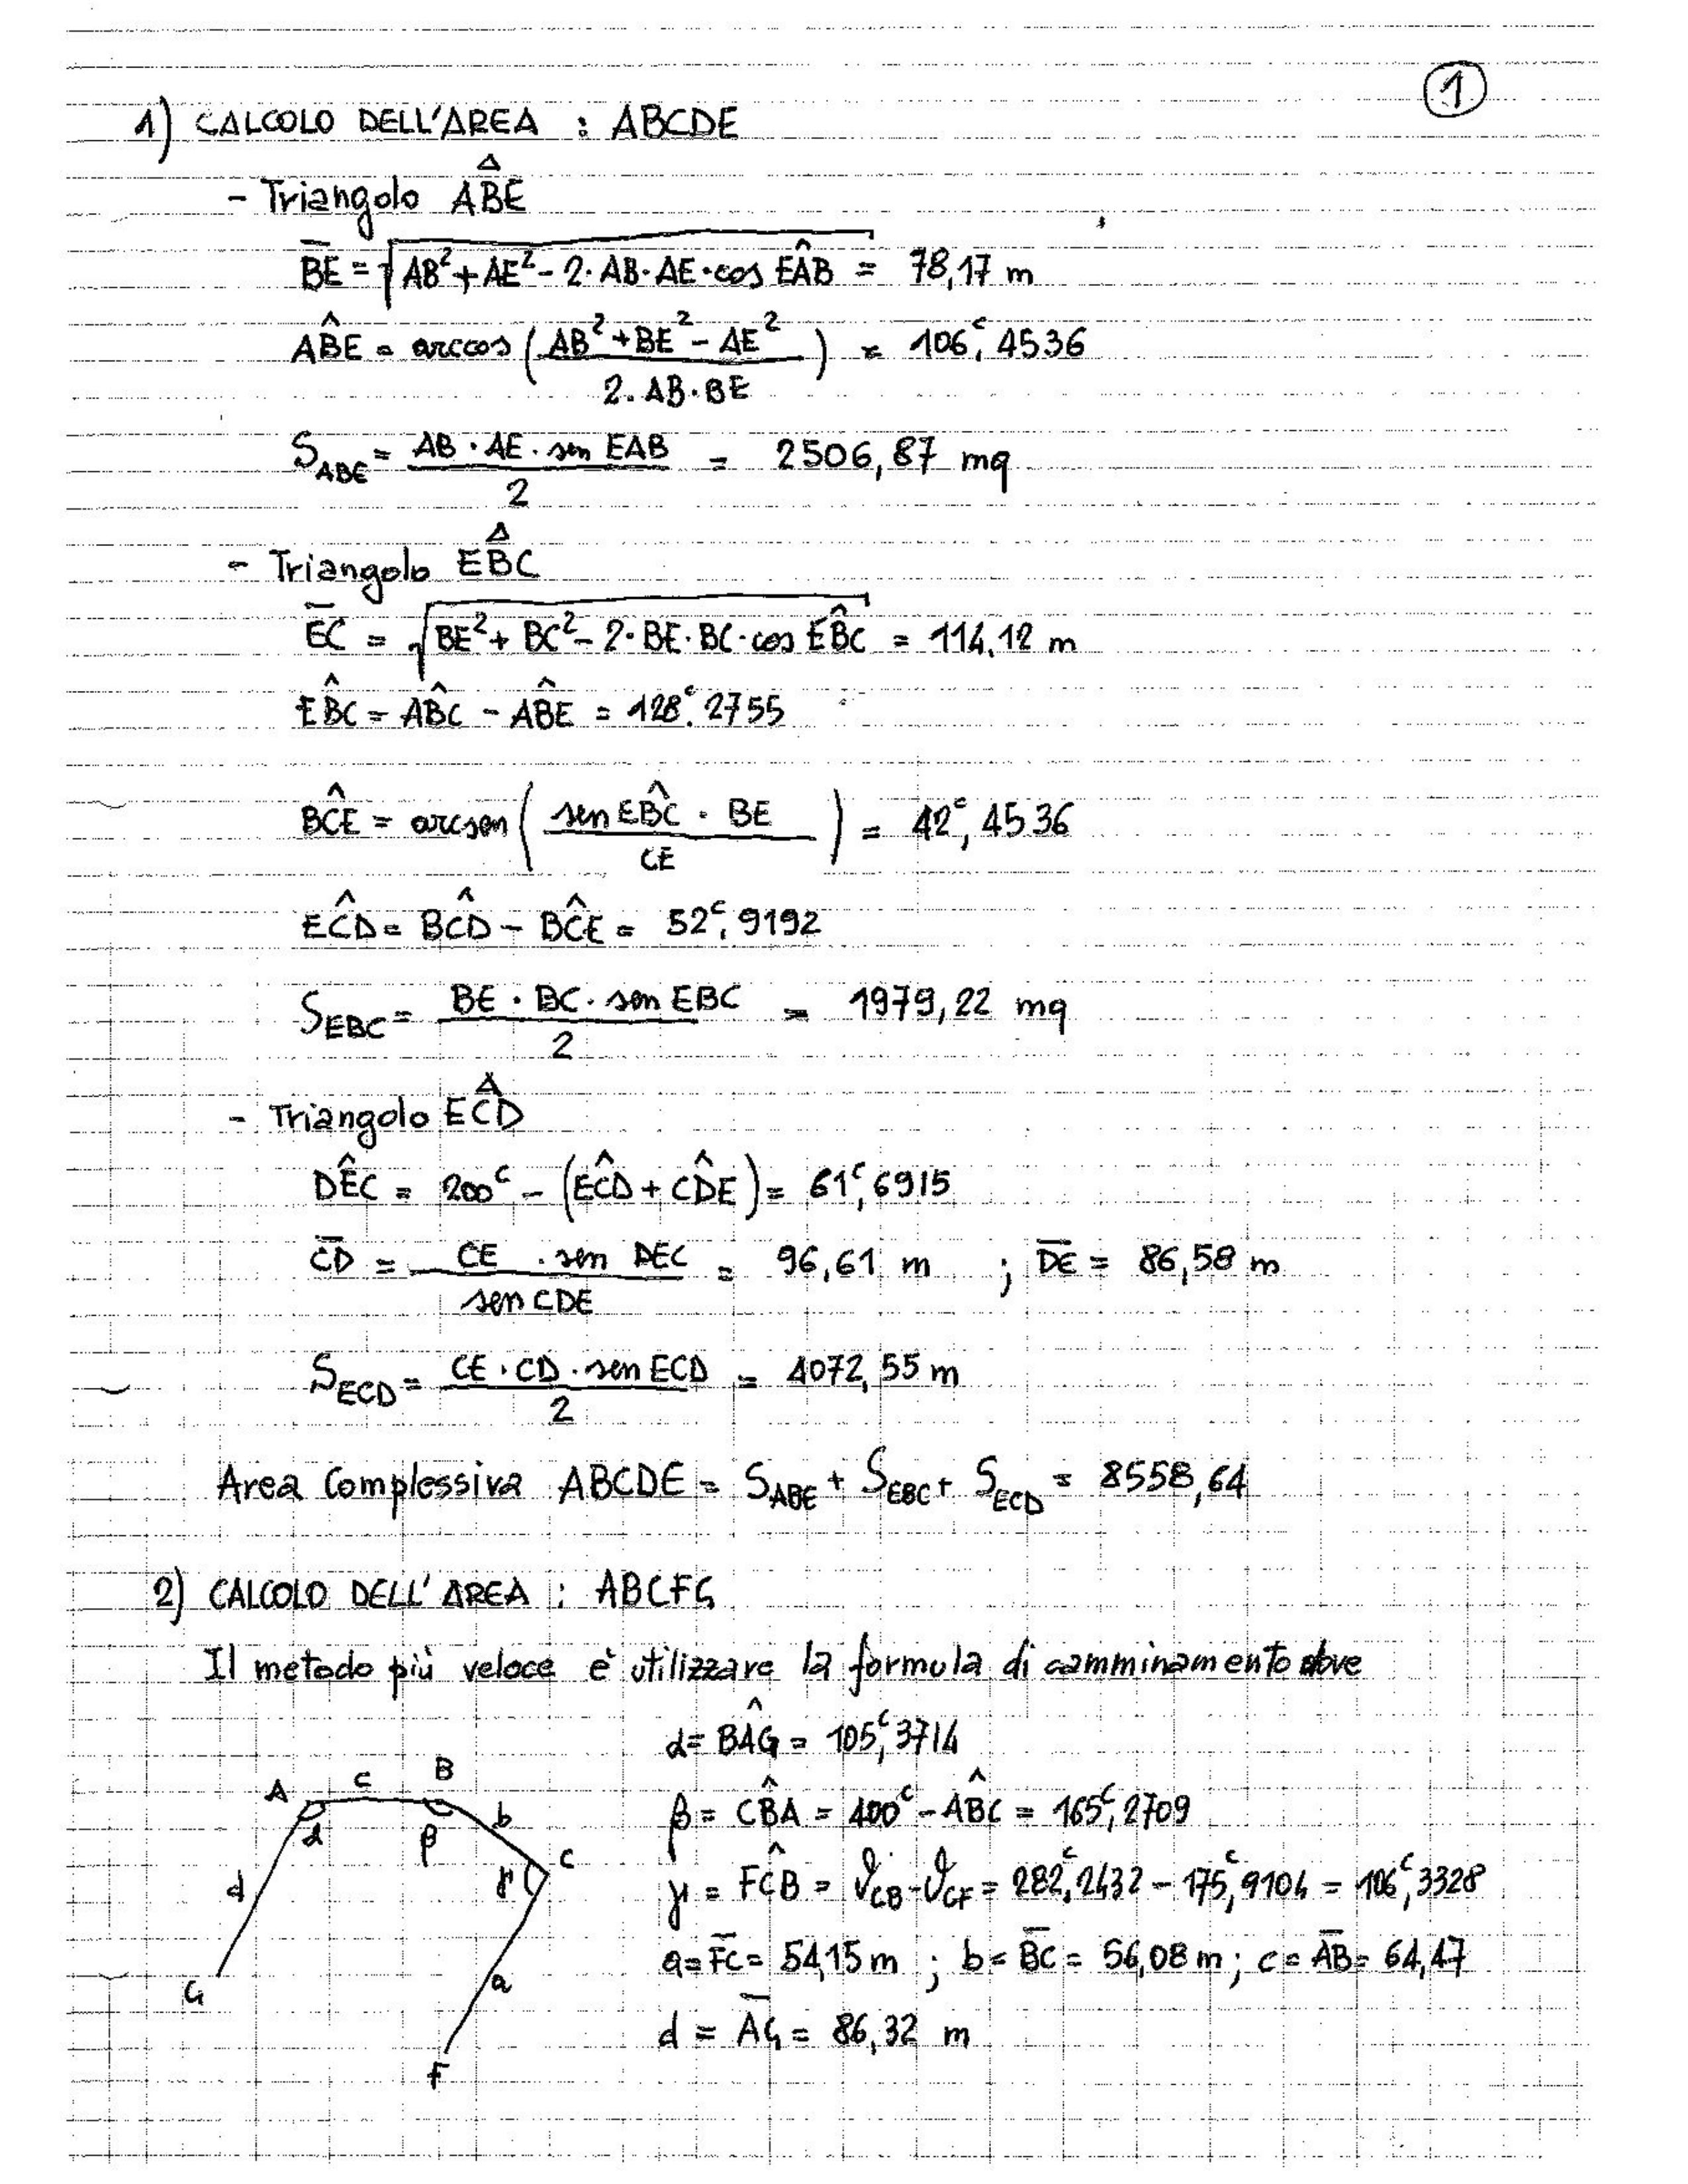 1
1) CALCOLO DELL'AREA : ABCDE
- Triangolo ABE
BE = √AB²+AE²-2·AB·AE·cos EÂB = 78,17 m
AB̂E = arccos (AB²+BE²-AE² / 2·AB·BE) = 106ᶜ,4536
S_ABE = AB·AE·sen EAB / 2 = 2506,87 mq
- Triangolo EBC
EC = √BE²+BC²-2·BE·BC·cos EB̂C = 114,12 m
EB̂C = AB̂C - AB̂E = 128ᶜ,2755
BĈE = arcsen (sen EB̂C · BE / CE) = 42ᶜ,4536
EĈD = BĈD - BĈE = 52ᶜ,9192
S_EBC = BE·BC·sen EBC / 2 = 1979,22 mq
- Triangolo ECD
DÊC = 200ᶜ - (EĈD + CD̂E) = 61ᶜ,6915
CD = CE · sen DEC / sen CDE = 96,61 m ; DE = 86,58 m
S_ECD = CE·CD·sen ECD / 2 = 4072,55 m
Area Complessiva ABCDE = S_ABE + S_EBC + S_ECD = 8558,64
2) CALCOLO DELL'AREA : ABCFG
Il metodo più veloce è utilizzare la formula di camminamento dove
α = BÂG = 105ᶜ,3714
β = CB̂A = 400ᶜ - AB̂C = 165ᶜ,2709
γ = FĈB = ϑ_CB - ϑ_CF = 282ᶜ,2432 - 175ᶜ,9104 = 106ᶜ,3328
a = FC = 54,15 m ; b = BC = 56,08 m ; c = AB = 64,47
d = AG = 86,32 m
A c B
α β b
γ C
d
G a
F